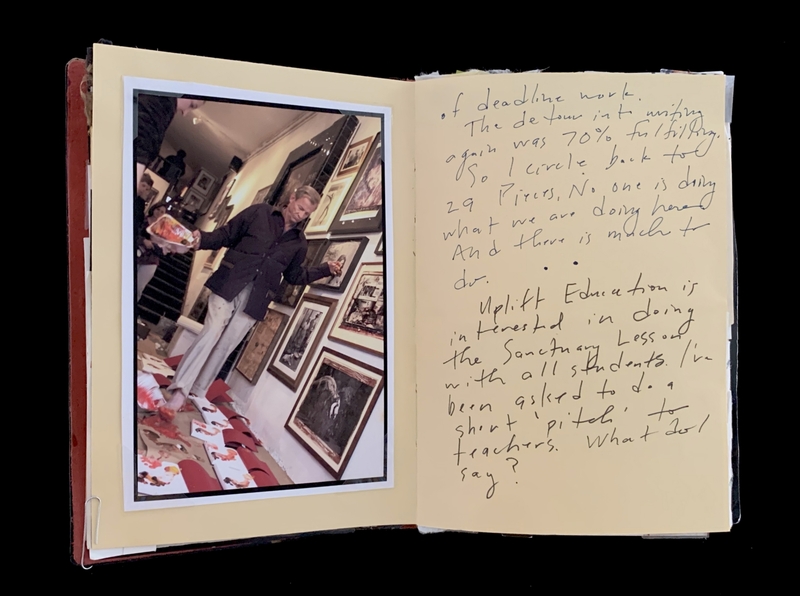 of deadline work.
The detour into writing
again was 70% fulfilling.
So I circle back to
29 Pieces. No one is doing
what we are doing here
And there is much to
do.
Uplift Education is
interested in doing
the Sanctuary Lesson
with all students. I've
been asked to do a
short 'pitch' to
teachers. What do I
say?